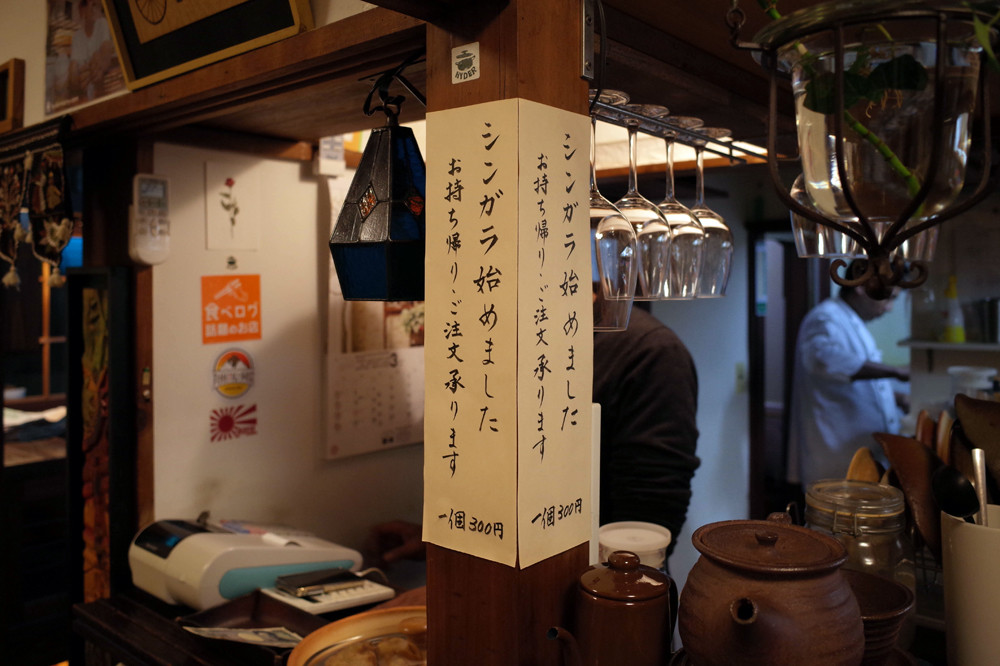 RYDER
シンガラ始めました
お持ち帰り・ご注文承ります
一個300円
シンガラ始めました
お持ち帰り・ご注文承ります
一個300円
食べログ
話題のお店